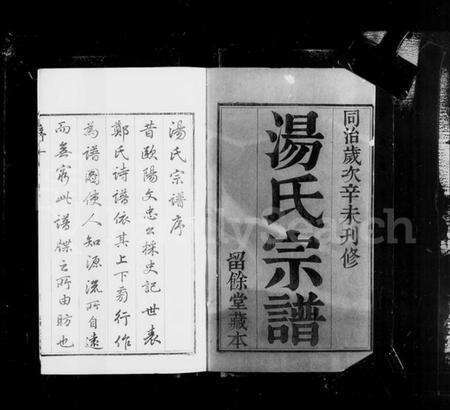 同治歲次辛未刊修
湯氏宗譜
留餘堂藏本
湯氏宗譜序
昔歐陽文忠公採史記世表
鄭氏詩譜依其上下旁行作
為譜圖使人知源流所自遠
而無窮此譜牒之所由昉也